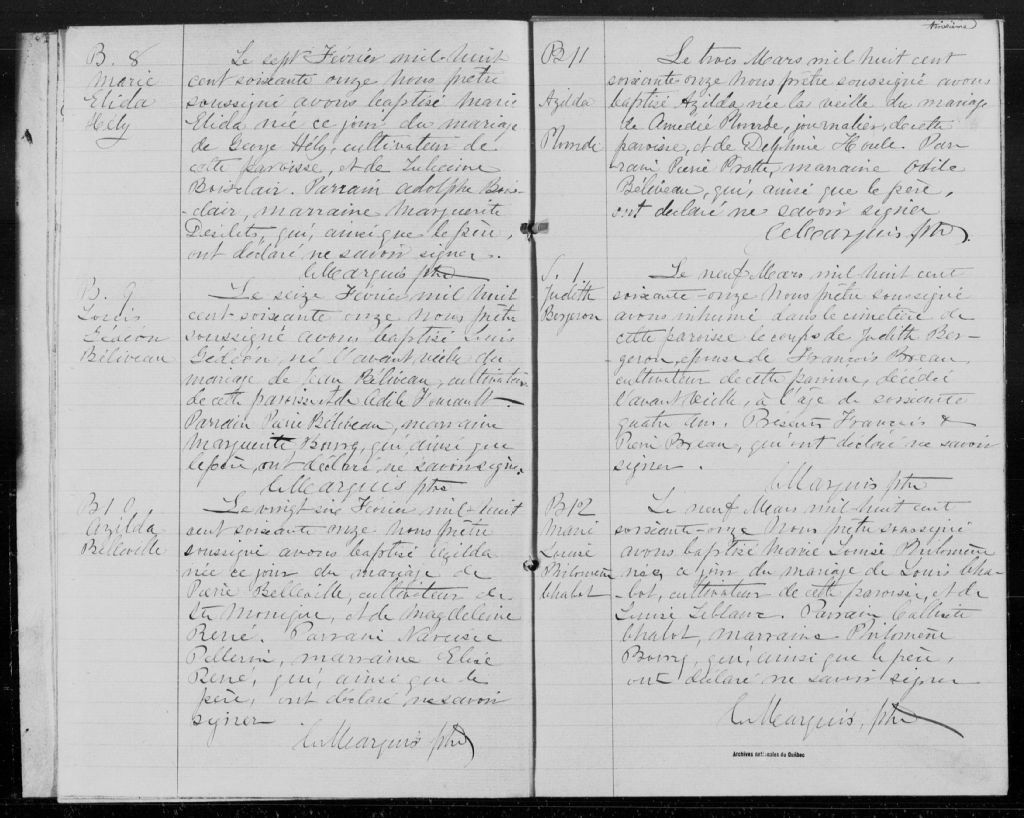 B. 8
Marie
Elida
Hely
Le sept Février mil-huit
cent soixante onze nous prêtre
soussigné avons baptisé Marie
Elida née ce jour du mariage
de George Hély, cultivateur de
cette paroisse, et de
Boisclair. Parrain Adolphe Bois-
-clair, marraine Marguerite
Desilets, qui, ainsi que le père,
ont déclaré ne savoir signer.
C. Marquis ptre
B. 9
Louis
Gédéon
Béliveau
Le seize Février mil huit
cent-soixante onze nous prêtre
soussigné avons baptisé Louis
Gédéon, né l'avant veille du
mariage de Jean Béliveau, cultivateur
de cette paroisse et de Adile
Parrain Pierre Béliveau, marraine
Marguerite Bourg, qui, ainsi que
le père, ont déclaré ne savoir signer.
C. Marquis ptre
B10
Azilda
Belleville
Le vingt six Février mil-huit
cent soixante onze nous prêtre
soussigné avons baptisé Azilda
née ce jour du mariage de
Pierre Belleville, cultivateur de
Ste Monique, et de Magdeleine
René. Parrain Narcisse
Pellerin, marraine Elise
René, qui, ainsi que le
père, ont déclaré ne savoir
signer
C. Marquis ptre
B11
Azilda
Plourde
Le trois Mars mil huit cent
soixante-onze nous prêtre soussigné avons
baptisé Azilda née la veille du mariage
de Amédié Plourde, journalier, de cette
paroisse, et de Delphine Houle. Par-
rain Pierre Prott, marraine Odile
Béliveau, qui, ainsi que le père,
ont déclaré ne savoir signer
C. Marquis ptre
S. 1
Judith
Bergeron
Le neuf Mars mil huit cent
soixante-onze nous prêtre soussigné
avons inhumé dans le cimetière de
cette paroisse le corps de Judith Ber-
geron, épouse de François Breau,
cultivateur de cette paroisse, décédée
l'avant veille, à l'âge de soixante
quatre ans. Présents François &
Pierre Breau, qui ont déclaré ne savoir
signer.
C. Marquis ptre
B12
Marie
Louise
Philomène
Chabot
Le neuf Mars mil huit cent
soixante-onze nous prêtre soussigné
avons baptisé Marie Louise Philomène
née ce jour du mariage de Louis Cha-
-bot, cultivateur de cette paroisse, et de
Louise Leblanc. Parrain Calixte
Chabot, marraine Philomène
Bourg, qui, ainsi que le père,
ont déclaré ne savoir signer
C. Marquis, ptre
Archives nationales du Québec